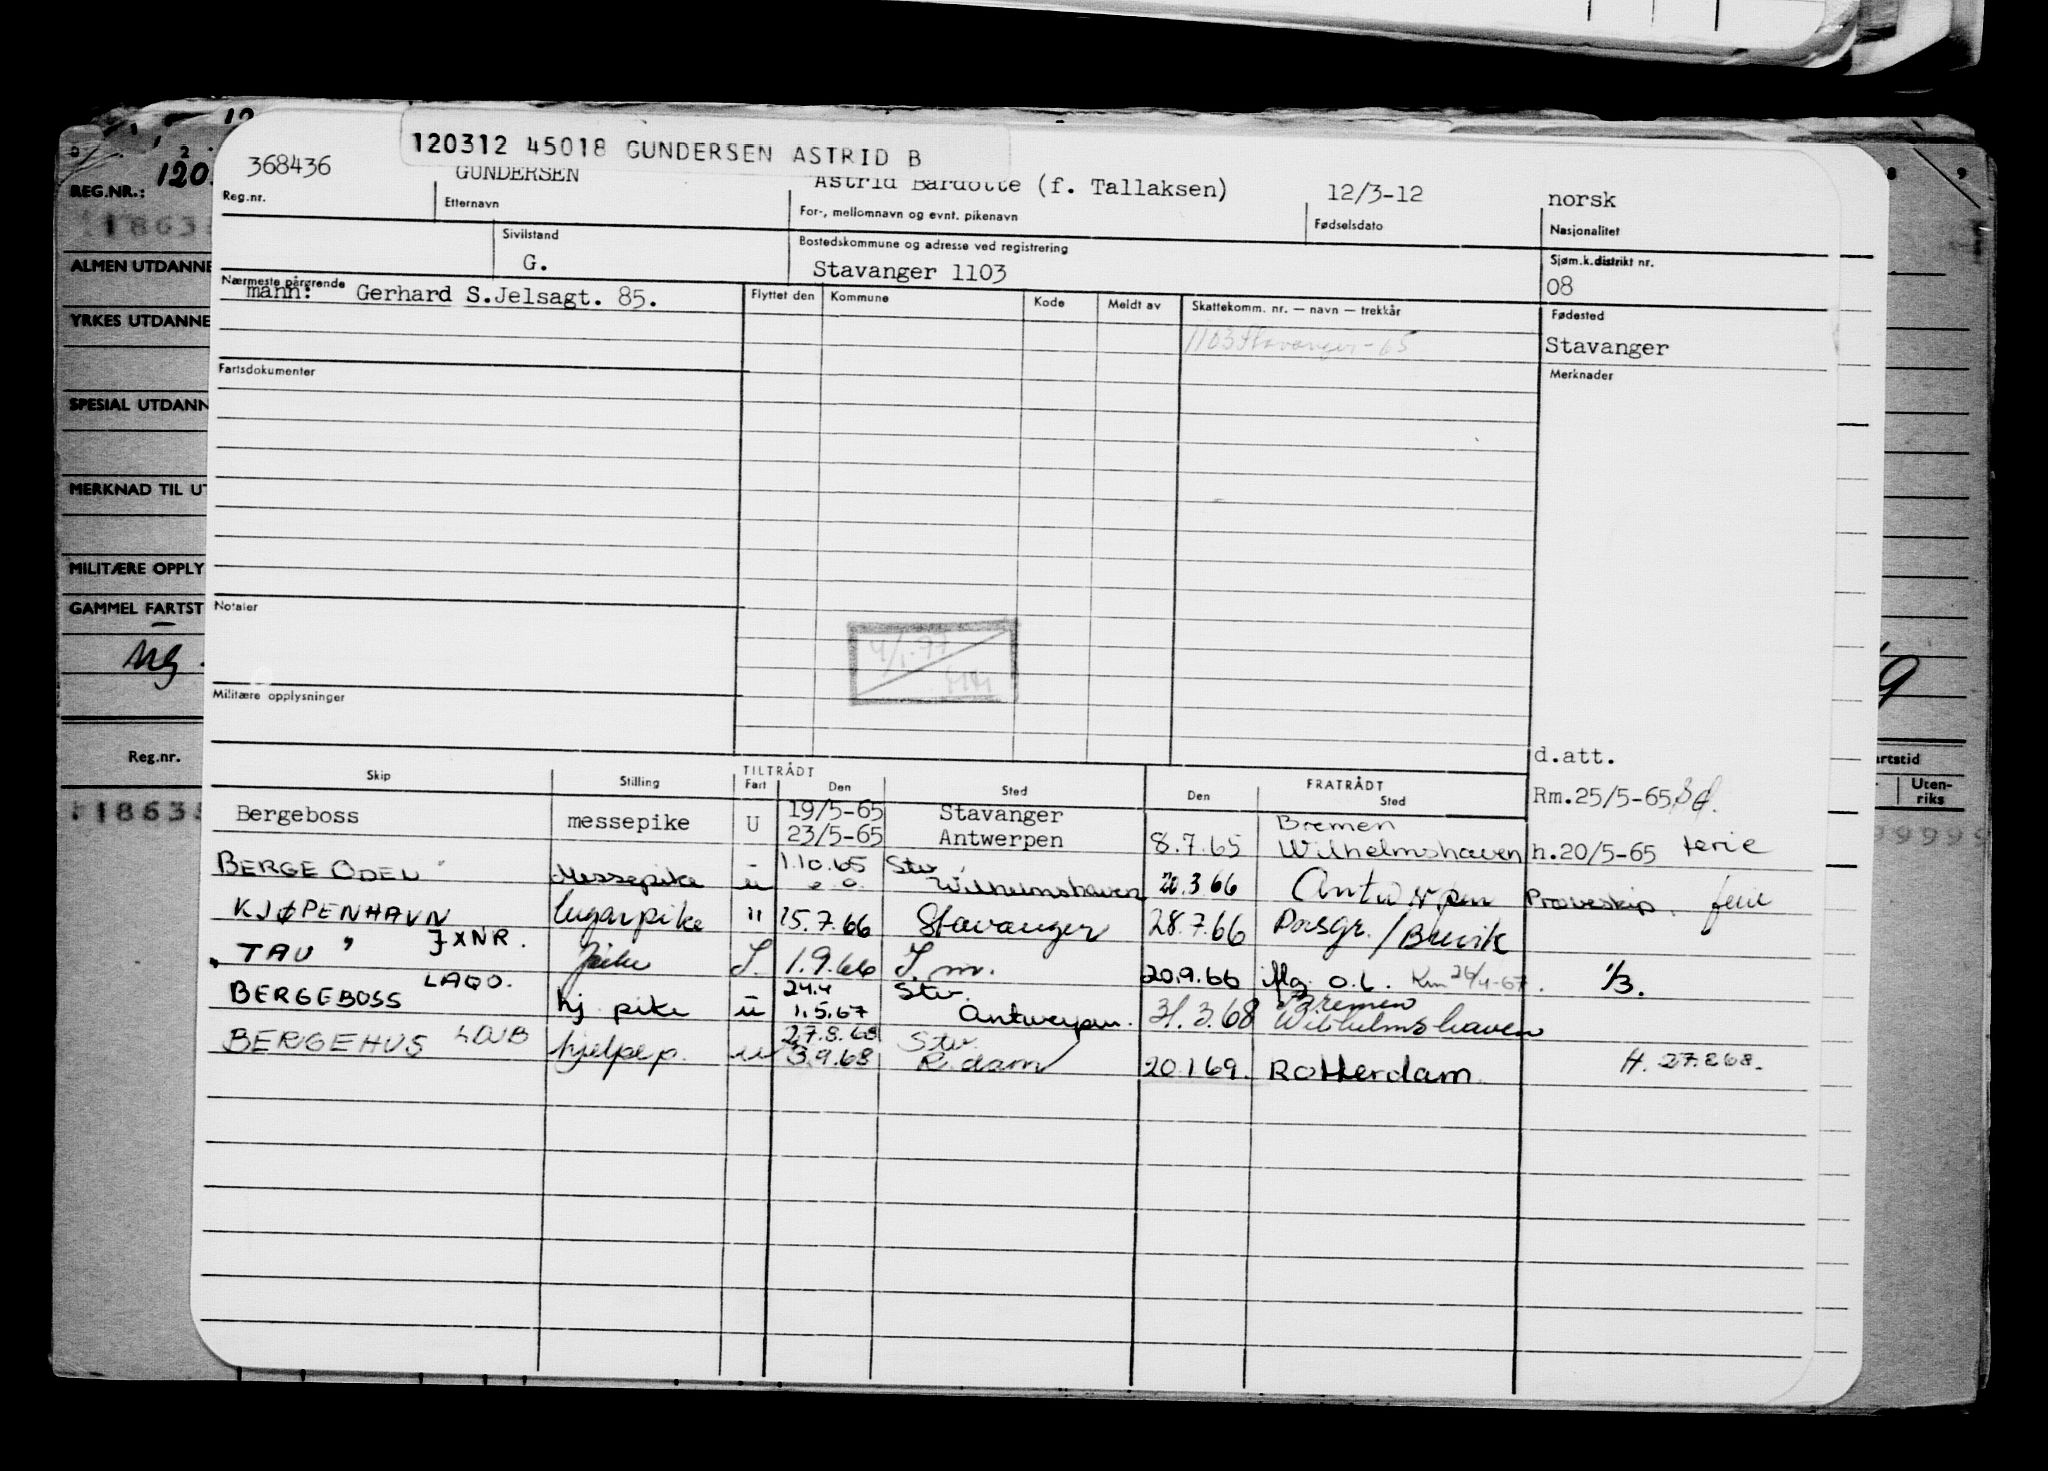 120312 45018 GUNDERSEN ASTRID B
368436 GUNDERSEN Astrid Bardotte (f. Tallaksen) 12/3-12 norsk
Reg.nr. Etternavn For-, mellomnavn og evnt. pikenavn Fødselsdato Nasjonalitet
Sivilstand Bostedskommune og adresse ved registrering Sjøm.k.distrikt nr.
G. Stavanger 1103 08
Nærmeste pårørende Flyttet den Kommune Kode Meldt av Skattekomm. nr. — navn — trekkår Fødested
mann: Gerhard S.Jelsagt. 85.
1103 Stavanger - 65 Stavanger
Fartsdokumenter Merknader
Notater
Militære opplysninger
d.att.
TILTRÅDT FRATRÅDT
Skip Stilling Fart Den Sted Den Sted
Rm.25/5-65
Bergeboss messepike U 19/5-65 Stavanger Bremen
23/5-65 Antwerpen 8.7.65 Wilhelmshaven h.20/5-65 ferie
BERGE ODEL Messepike u 1.10.65 Stv. Wilhelmshaven 20.3.66 Antwerpen Prøveskip. ferie
KJØPENHAVN lugarpike " 15.7.66 Stavanger 28.7.66 Porsgr./Brevik
TAU " JXNR. pike S. 1.9.66 S. m. 20.9.66 Mg. o.l. 1/3.
BERGEBOSS LAQO. hj. pike u 24.4 Stv. Bremen
1.5.67 Antwerpen. 31.3.68 Wilhelmshaven
BERGEHUS LDUB hjelpep. u 27.8.68 Stv.
3.9.68 R.dam 20.1.69. Rotterdam. H. 27.8.68.
REG.NR.: 120
1863
ALMEN UTDANNE
YRKES UTDANNE
SPESIAL UTDANN
MERKNAD TIL UT
MILITÆRE OPPLY
GAMMEL FARTST
Reg.nr.
1863
artstid
Uten-
riks
99999